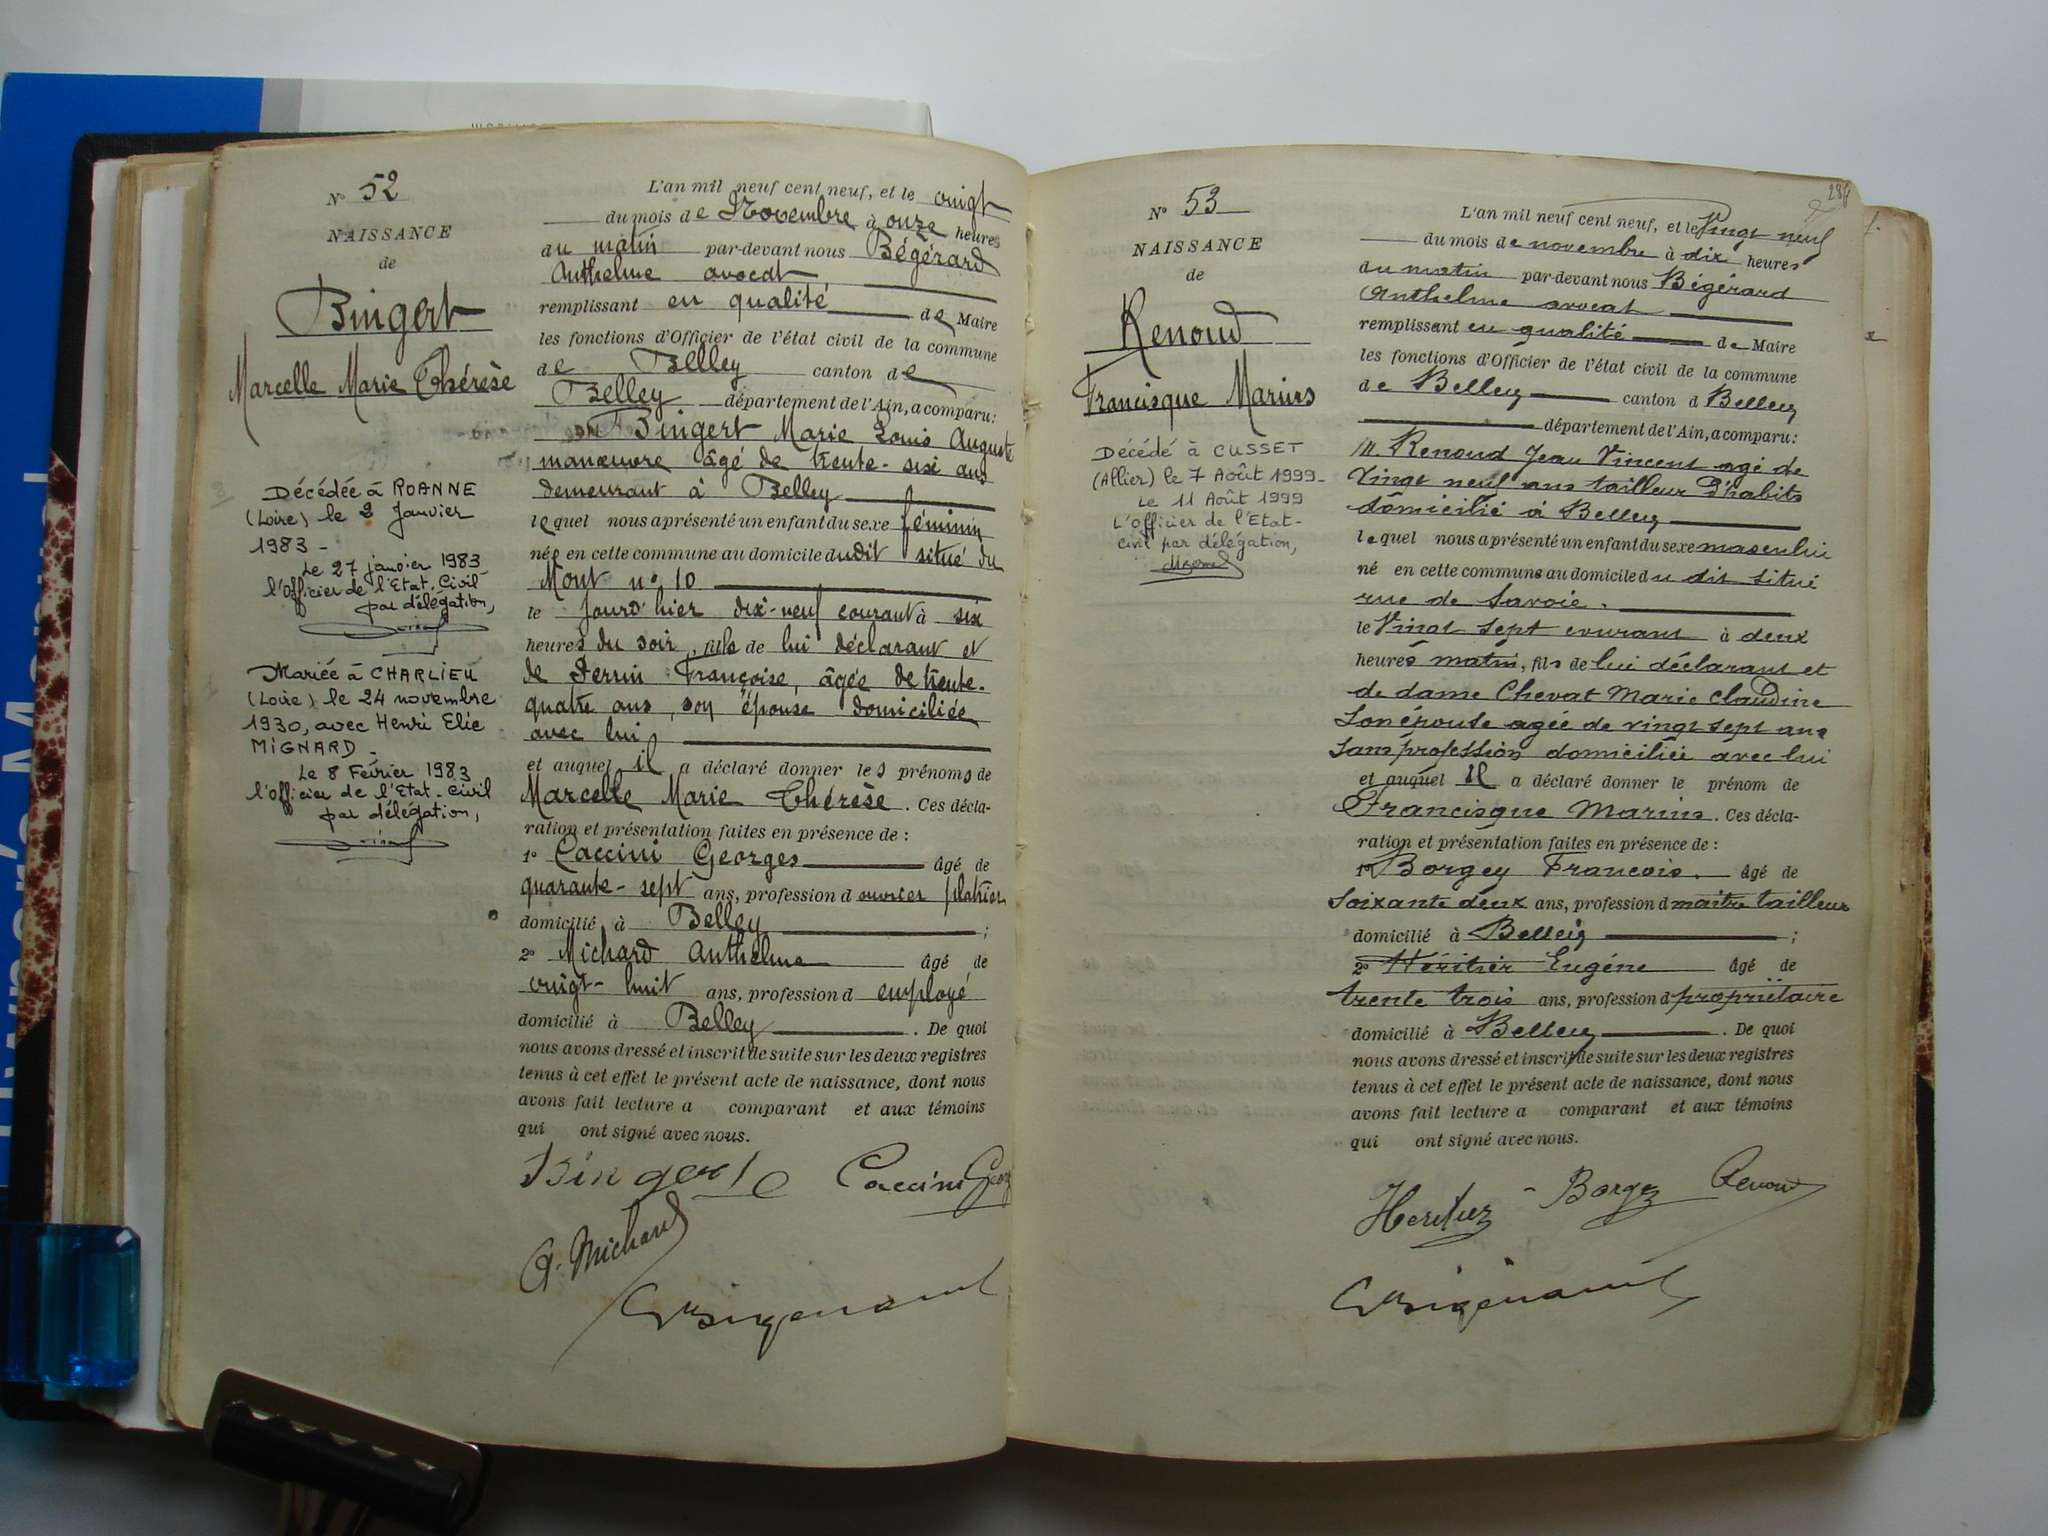 N° 52
NAISSANCE
de
Bingert
Marcelle Marie Thérèse
Décédée à ROANNE
(Loire) le 2 Janvier
1983 -
Le 27 janvier 1983
l'officier de l'Etat-Civil
par délégation,
Mariée à CHARLIEU
(Loire) le 24 novembre
1930, avec Henri Elie
MIGNARD -
Le 8 Février 1983
l'officier de l'Etat-Civil
par délégation,
L'an mil neuf cent neuf, et le vingt
du mois de Novembre à onze heures
du matin par-devant nous Bégérard
Anthelme avocat
remplissant en qualité de Maire
les fonctions d'Officier de l'état civil de la commune
de Belley canton de
Belley département de l'Ain, a comparu:
Bingert Marie Louis Auguste
manœuvre âgé de trente-six ans
demeurant à Belley
lequel nous a présenté un enfant du sexe féminin
née en cette commune au domicile dudit situé du
Mont n° 10
le jour d'hier dix-neuf courant à six
heures du soir, fille de lui déclarant et
de Perrin Françoise, âgée de trente-
quatre ans, son épouse domiciliée
avec lui
et auquel il a déclaré donner les prénoms de
Marcelle Marie Thérèse. Ces décla-
ration et présentation faites en présence de :
1° Caccini Georges âgé de
quarante-sept ans, profession d ouvrier plâtrier
domicilié à Belley ;
2° Michard Anthelme âgé de
vingt-huit ans, profession d employé
domicilié à Belley. De quoi
nous avons dressé et inscrit de suite sur les deux registres
tenus à cet effet le présent acte de naissance, dont nous
avons fait lecture a comparant et aux témoins
qui ont signé avec nous.
Bingert Caccini Georg
A. Michard
N° 53
NAISSANCE
de
Renoud
Francisque Marius
Décédé à CUSSET
(Allier) le 7 Août 1999-
Le 11 Août 1999
L'officier de l'Etat-
civil par délégation,
L'an mil neuf cent neuf, et le Vingt neuf
du mois de novembre à dix heures
du matin par-devant nous Bégérard
Anthelme avocat
remplissant en qualité de Maire
les fonctions d'Officier de l'état civil de la commune
de Belley canton d Belley
département de l'Ain, a comparu:
M. Renoud Jean Vincent agé de
Vingt neuf ans tailleur d'habits
domicilié à Belley
lequel nous a présenté un enfant du sexe masculin
né en cette commune au domicile du dit situé
rue de Savoie.
le Vingt sept courant à deux
heures matin, fils de lui déclarant et
de dame Chevat Marie Claudine
Son épouse agée de vingt sept ans
Sans profession domiciliée avec lui
et auquel il a déclaré donner le prénom de
Francisque Marius. Ces décla-
ration et présentation faites en présence de :
1° Borgey Francois. âgé de
Soixante deux ans, profession d maître tailleur
domicilié à Belley ;
2° Héritier Eugéne âgé de
trente trois ans, profession d propriétaire
domicilié à Belley. De quoi
nous avons dressé et inscrit de suite sur les deux registres
tenus à cet effet le présent acte de naissance, dont nous
avons fait lecture a comparant et aux témoins
qui ont signé avec nous.
Heritier Borgey Renoud